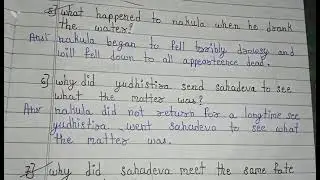 5) what happened to nakula when he drank
the water?
Ans nakula began to fell terribly drowsy and
will fell down to all appearteence dead.
6) why did yudhistira send sahadeva to see
what the matter was?
Ans nakula did not return for a longtime see
yudhistira went sahadeva to see what
the matter was.
7) why did sahadeva meet the same fate